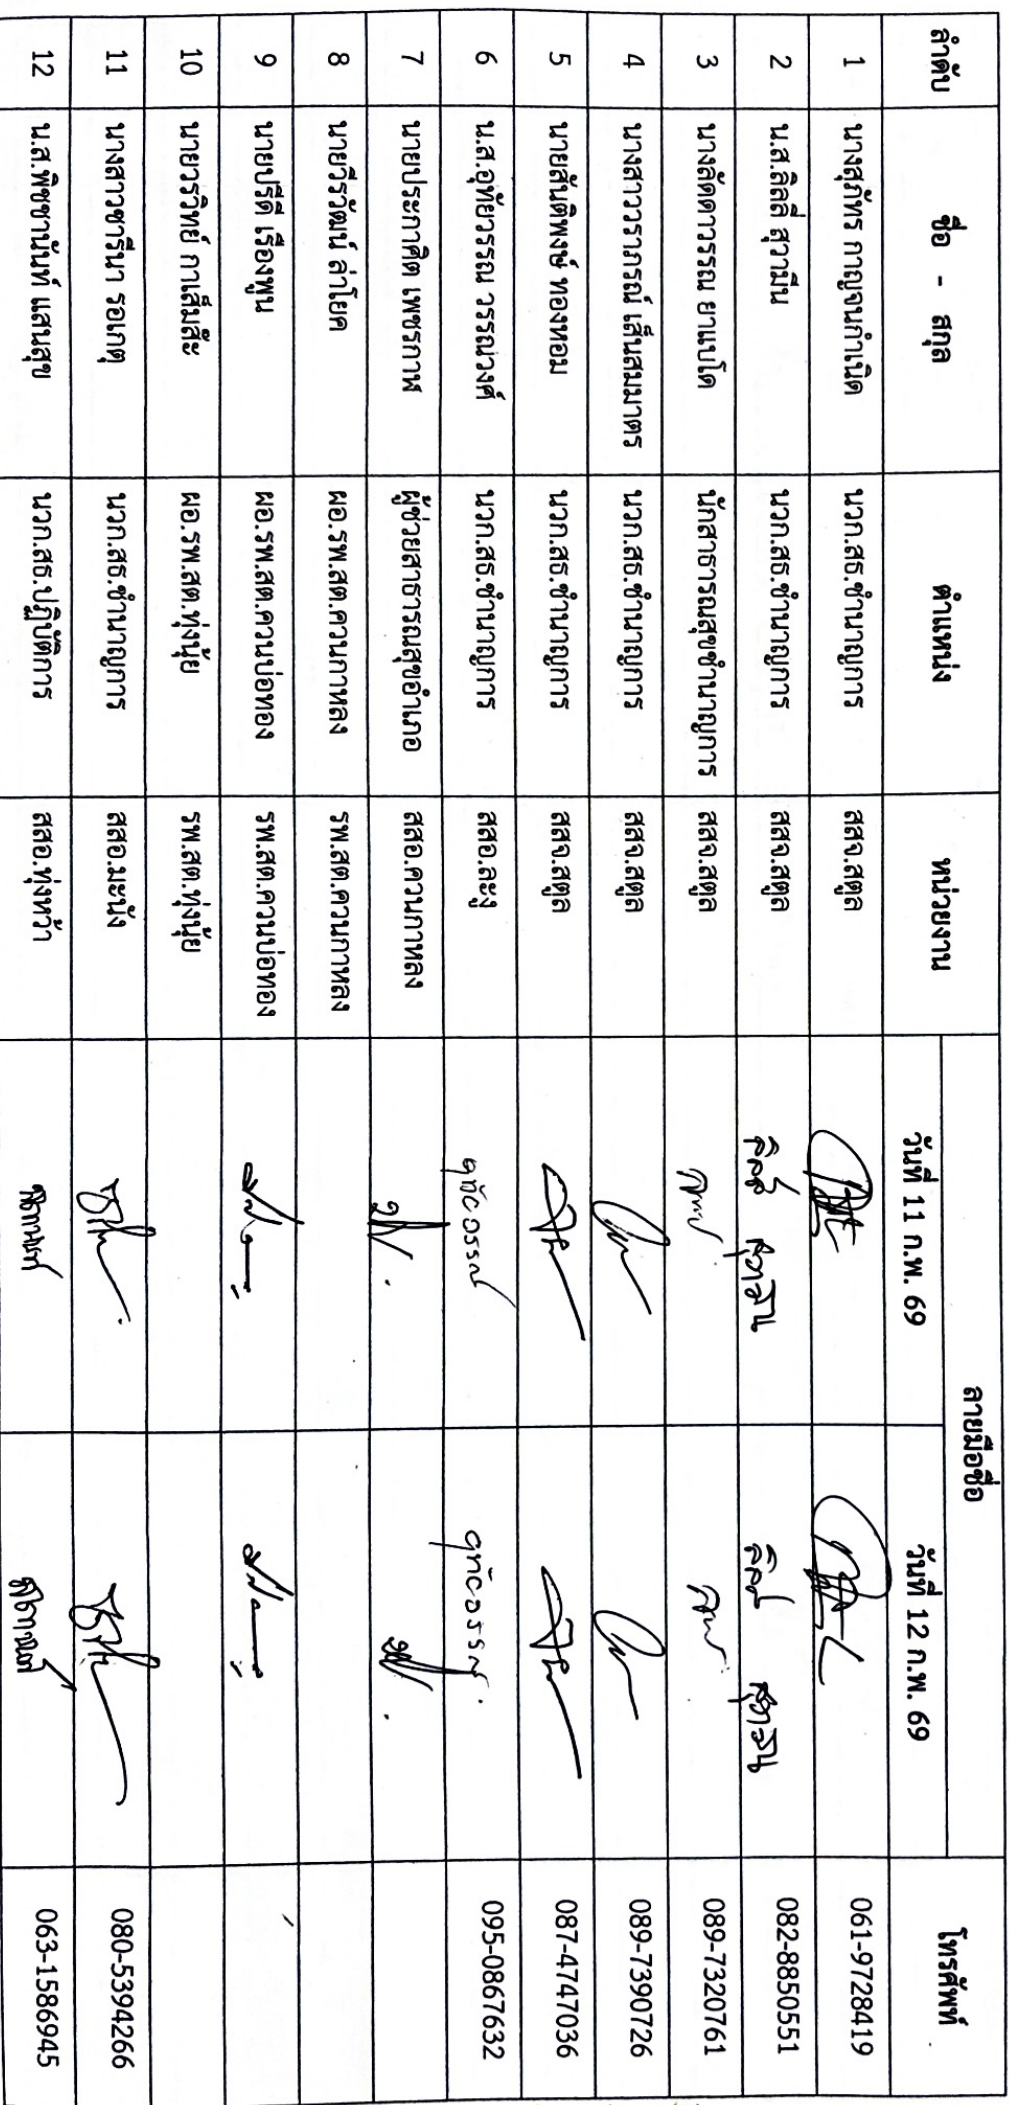 ลำดับ ชื่อ - สกุล ตำแหน่ง หน่วยงาน ลายมือชื่อ โทรศัพท์
วันที่ 11 ก.พ. 69 วันที่ 12 ก.พ. 69
1 นางสุภัทร กาญจนกำเนิด นวก.สธ.ชำนาญการ สสจ.สตูล 061-9728419
2 น.ส.ลิลลี่ สุวามีน นวก.สธ.ชำนาญการ สสจ.สตูล ลิลลี่ สุวามีน ลิลลี่ สุวามีน 082-8850551
3 นางลัดดาวรรณ ยาแบโด นักสาธารณสุขชำนาญการ สสจ.สตูล 089-7320761
4 นางสาววราภรณ์ เส็นสมมาตร นวก.สธ.ชำนาญการ สสจ.สตูล 089-7390726
5 นายสันติพงษ์ ทองหอม นวก.สธ.ชำนาญการ สสจ.สตูล 087-4747036
6 น.ส.อุทัยวรรณ วรรณวงศ์ นวก.สธ.ชำนาญการ สสอ.ละงู อุทัยวรรณ อุทัยวรรณ 095-0867632
7 นายประกาศิต เพชรกาฬ ผู้ช่วยสาธารณสุขอำเภอ สสอ.ควนกาหลง
8 นายวีรวัฒน์ ล่าโยค ผอ.รพ.สต.ควนกาหลง รพ.สต.ควนกาหลง
9 นายปรีดี เรืองพูน ผอ.รพ.สต.ควนบ่อทอง รพ.สต.ควนบ่อทอง
10 นายวรวิทย์ กาเส็มส๊ะ ผอ.รพ.สต.ทุ่งนุ้ย รพ.สต.ทุ่งนุ้ย
11 นางสาวชารีนา รอเกตุ นวก.สธ.ชำนาญการ สสอ.มะนัง 080-5394266
12 น.ส.พิชชานันท์ แสนสุข นวก.สธ.ปฏิบัติการ สสอ.ทุ่งหว้า 063-1586945